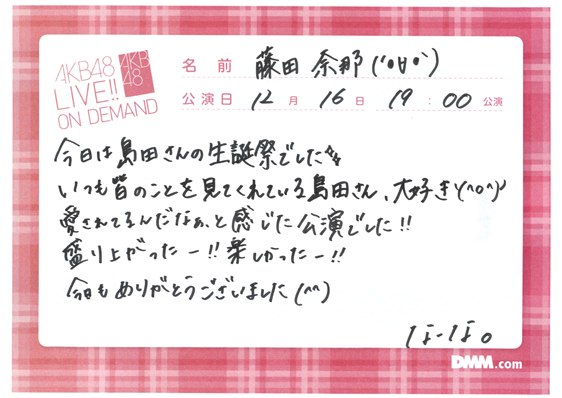 AKB48
LIVE!!
ON DEMAND
AKB
48
名前 藤田奈那(´•∀•`)
公演日 12月16日 19:00公演
今日は島田さんの生誕祭でした
いつも皆のことを見てくれている島田さん、大好き\(^o^)/
愛されてるんだなぁ、と感じた公演でした!!
盛り上がったー!!楽しかったー!!
今日もありがとうございました(^^)
なーな。
DMM.com